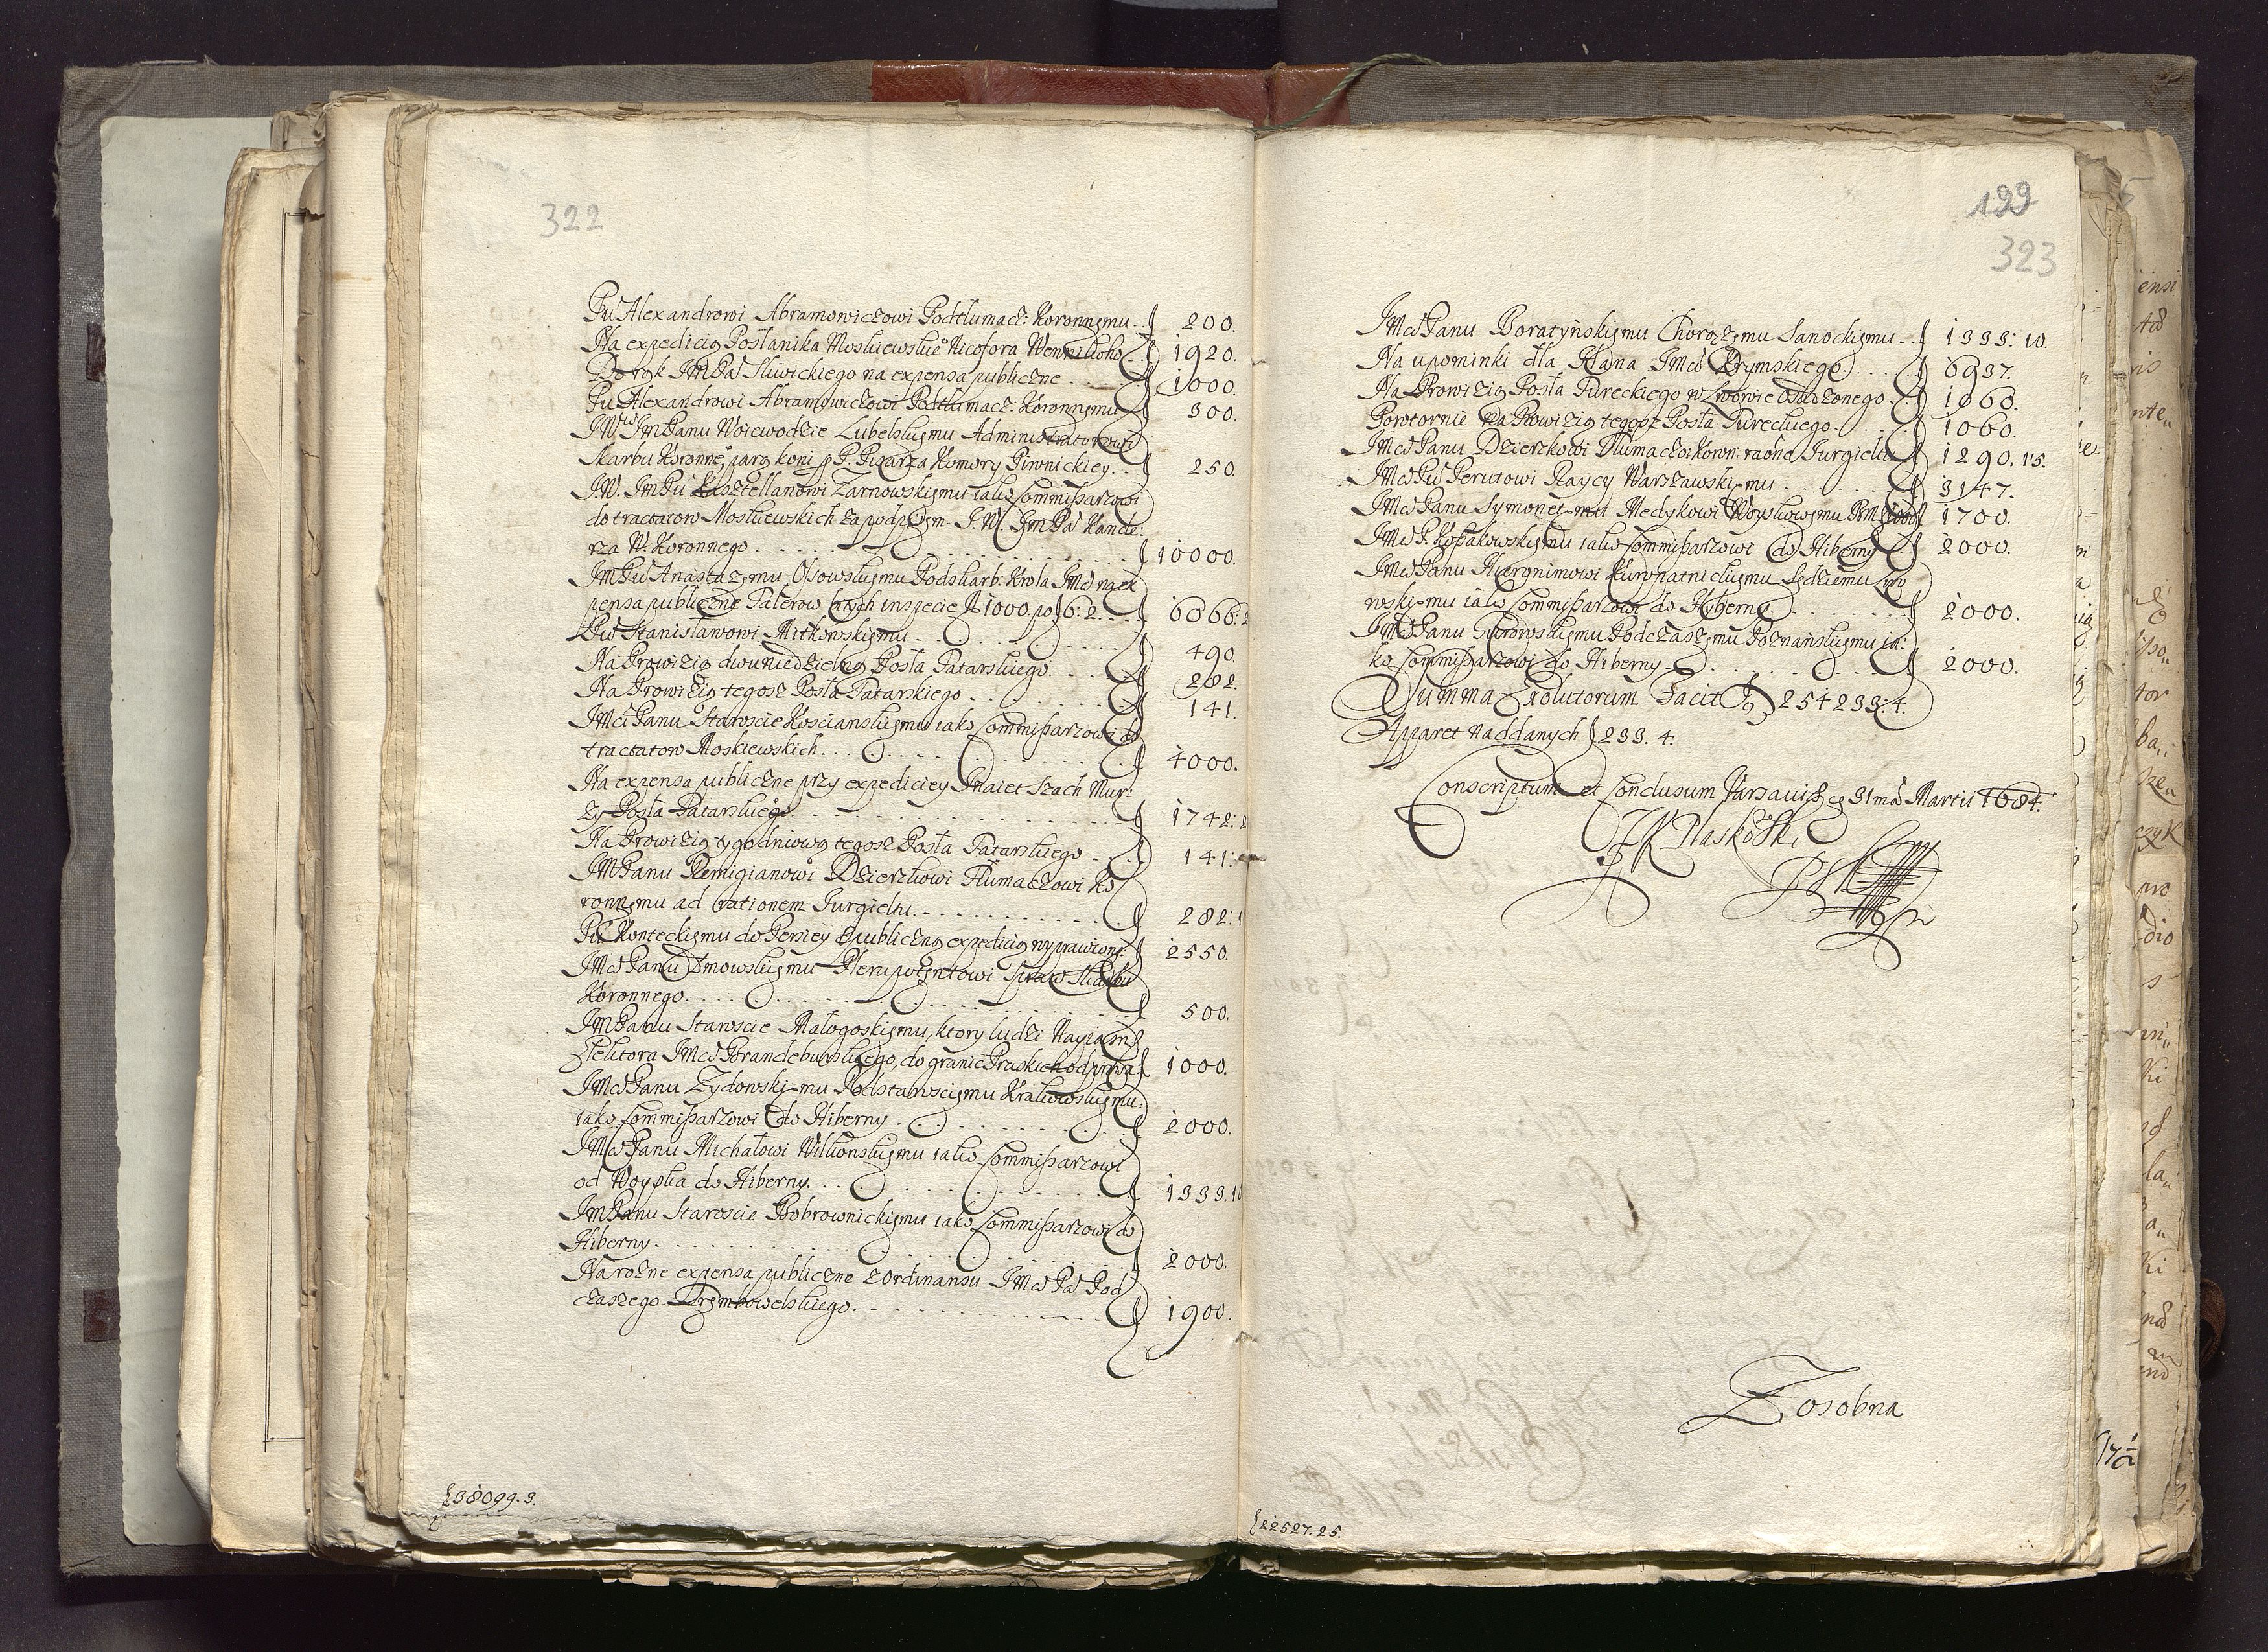 322
Pu Alexandrowi Abramowiczowi Podtlumacz: Koronnemu .. f 200.
Na expedicią Posłanika Moskiewskie Nicofora f 1920.
Do rąk JmPa Sliwickiego na expensa publiczne . f 1000.
Pu Alexandrowi Abramowiczowi Podtlumacz: Koronnemu f 300.
JW JmPanu Woiewodzie Lubelskiemu Administratorowi
Skarbu Koronne, parę koni P. Pisarza Komory Piwnickiey . . f 250.
J.W. JmPu Kasztellanowi Żarnowskiemu iako Commissarzowi
do tractatow Moskiewskich za podpisem J.W. JmPa Kancle:
rza W. Koronnego . . . f 10000.
JmPu Anastazemu Ossowskiemu Podskarb: Krola Jmci na ex
pensa publiczne Talerow bitych in specie N 1000. po f 6: 2. . . 6866: 2
Pu Stanisławowi Mitkowskiemu . . . f 490.
Na Prowizią dwuniedzielną Posła Tatarskiego. . . f 282.
Na Prowizią tegosz Posła Tatarskiego . . . f 141.
JMci Panu Staroscie Koscianskiemu iako Commissarzowi do
tractatow Moskiewskich. . . f 4000.
Na expensa publiczne przy expediciey Jnaiet Szach Mur:
zy Posła Tatarskiego. . . f 1742: 2
Na Prowizią tygodniową tegosz Posła Tatarskiego . . f 141:
JMPanu Remigianowi Dzierzkowi Tłumaczowi Ko
ronnemu ad rationem Jurgieltu. . . f 282: 1
Pu Konteckiemu do Persiey publiczną expedicią wyprawione: f 2550.
JMci Panu Dmowskiemu Plenipotentowi spraw Skarbu
Koronnego. . . f 500.
JmPanu Staroscie Małogoskiemu, ktory ludzi Nayiasn
Elektora JMci Brandeburskiego, do granic Pruskich odprowa: f 1000.
JMci Panu Zydowskiemu Podstarosciemu Krakowskiemu:
iako Commissarzowi do Hiberny . . . f 2000.
JMci Panu Michałowi Wilkonskiemu iako Commissarzowi
od Woyska do Hiberny. . . f 1333.10
JmPanu Staroscie Bobrownickiemu iako Commissarzowi do
Hiberny . . . f 2000.
Na rozne expensa publiczne z Ordinansu JMci Pa Pod
czaszego Trembowelskiego. . . f 1900.
f 38099. 3.
199
323
JMci Panu Boratyńskiemu Chorążemu Sanockiemu . . f 1333: 10.
Na upominki dla Hana JMci Krymskiego. . . f 6937.
Na Prowizią Posła Tureckiego w Lwowie osadzonego . f 1060.
Powtornie na Prowizią tegosz Posła Tureckiego. . . f 1060.
JMci Panu Dzierzkowi Tłumaczowi Koron: raóne Jurgieltu f 1290. 15.
JMci Pu Perutowi Raycy Warszawskiemu . . . f 3147.
JMci Panu Symonetemu Medykowi Woyskowemu f 1700.
JMci P. Kossakowskiemu iako Commissarzowi do Hiberny . f 2000.
JMci Panu Hieronimowi Kuropatnickiemu Sędziemu Lwo
wskiemu iako Commissarzowi do Hyberny . . . f 2000.
JMci Panu Gurowskiemu Podczaszemu Poznańskiemu ia:
ko Commissarzowi do Hiberny . . . f 2000.
Summa Exolutorum Facit f 254233: 4.
Apparet naddanych f 233. 4.
Conscriptum et Conclusum Varsaviæ 31ma Martii 1684.
Zosobna
f 22527. 25.